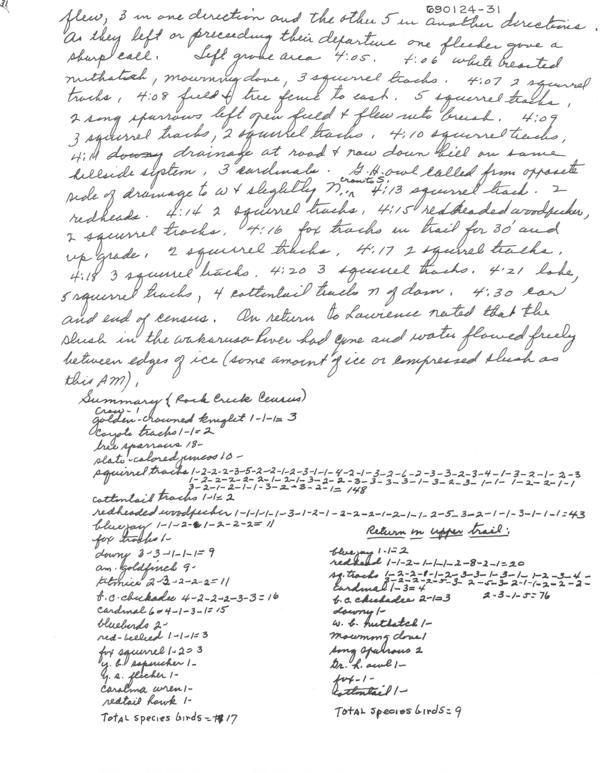 31
690124-31
flew, 3 in one direction and the other 5 in another directions.
As they left or preceeding their departure one flicker gave a
sharp call. Left grove area 4:05. 4:06 white breasted
nuthatch, mourning dove, 3 squirrel tracks. 4:07 2 squirrel
tracks, 4:08 field & tree fence to east. 5 squirrel tracks,
2 song sparrows left open field & flew into brush. 4:09
3 squirrel tracks, 2 squirrel tracks. 4:10 squirrel tracks,
4:11 downy drainage at road & now down hill on same
hillside system, 3 cardinals. G.H. owl called from opposite
side of drainage to W & slightly N. 4:13 squirrel track. 2
redheads. 4:14 2 squirrel tracks, 4:15 redheaded woodpecker,
2 squirrel tracks. 4:16 fox tracks in trail for 30' and
up grade, 2 squirrel tracks, 4:17 2 squirrel tracks.
4:18 3 squirrel tracks. 4:20 3 squirrel tracks. 4:21 lake,
5 squirrel tracks, 4 cottontail tracks N of dam. 4:30 car
and end of census. On return to Lawrence noted that the
slush in the Wakarusa River had gone and water flowed freely
between edges of ice (some amount of ice or compressed slush as
this AM).
Summary (Rock Creek Census)
Crow-1
golden-crowned kinglet 1-1-1=3
Coyote tracks 1-1=2
tree sparrows 18-
slate-colored juncos 10-
squirrel tracks 1-2-2-2-3-5-2-2-1-2-3-1-1-4-2-1-3-2-6-2-3-3-2-3-4-1-3-2-1-2-3
= 148
cottontail tracks 1-1=2
redheaded woodpecker 1-1-1-1-1-3-1-2-1-2-2-2-1-2-1-1-2-5-3-2-1-1-3-1-1=43
bluejay 1-1-2-1-2-2-2=11
fox tracks 1-
downy 3-3-1-1-1=9
am. goldfinch 9-
titmice 2-3-2-2-2=11
b.c. chickadee 4-2-2-2-3-3=16
cardinal 6-4-1-3-1=15
bluebirds 2-
red-bellied 1-1-1=3
fox squirrel 1-2=3
y.b. sapsucker 1-
y.s. flicker 1-
Carolina wren 1-
redtail hawk 1-
TOTAL species birds = 17
Return on upper trail:
bluejay 1-1=2
redhead 1-1-2-1-1-1-2-8-2-1=20
sq. tracks 1-2-2-8-1-2-3-3-1-3-1-1-2-3-4-
2-3-1-5=76
Cardinal 1-3=4
b.c. chickadee 2-1=3
downy 1-
w.b. nuthatch 1-
mourning dove 1
song sparrows 2
Gr. h. owl 1-
fox-1-
cottontail 1-
TOTAL species birds = 9